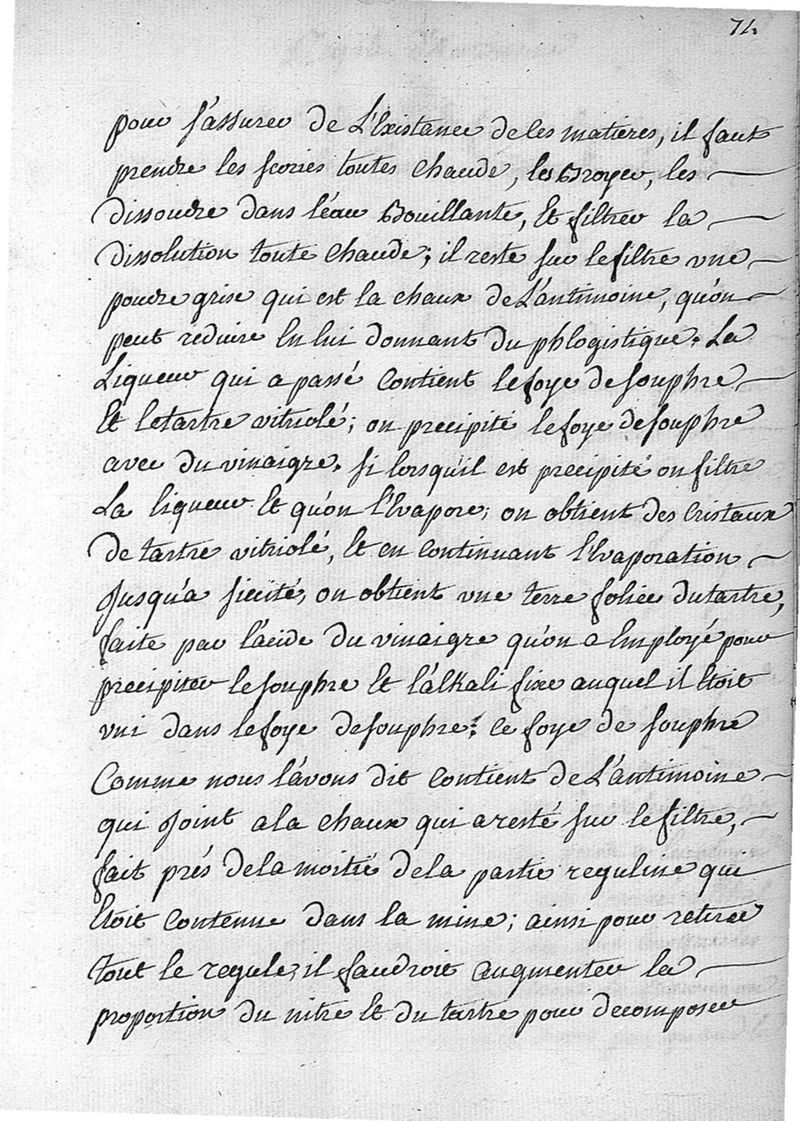 74.
pour s'assurer de L'Existance de les matieres, il faut
prendre les scories toutes chaude, les Broyer, les
dissoudre dans l'éau Bouillante, Et filtrer la
dissolution toute chaude; il reste sur le filtre vne
poudre grise qui est la chaux de L'antimoine, qu'on
peut réduire En lui donnant du phlogistique. La
Liqueur qui a passé Contient le foye de souphre
Et le tartre vitriolé; on precipité le foye de souphre
avec du vinaigre. si lorsqu'il est precipité on filtre
La liqueur Et qu'on l'Evapore; on obtient des Cristaux
de tartre vitriolé, Et en Continuant l'Evaporation
Jusqu'a siccité, on obtient vne terre foliée du tartre,
faite par l'acide du vinaigre qu'on a Employé pour
precipiter le souphre Et l'alkali fixe auquel il Etoit
vni dans le foye de souphre; Ce foye de souphre
Comme nous l'avons dit Contient de L'antimoine
qui Joint a la chaux qui a resté sur le filtre,
fait prés de la moitié de la partie reguline qui
Etoit Contenue dans la mine; ainsi pour retirer
tout le regule, il faudroit augmenter la
proportion du nitre Et du tartre pour decomposer